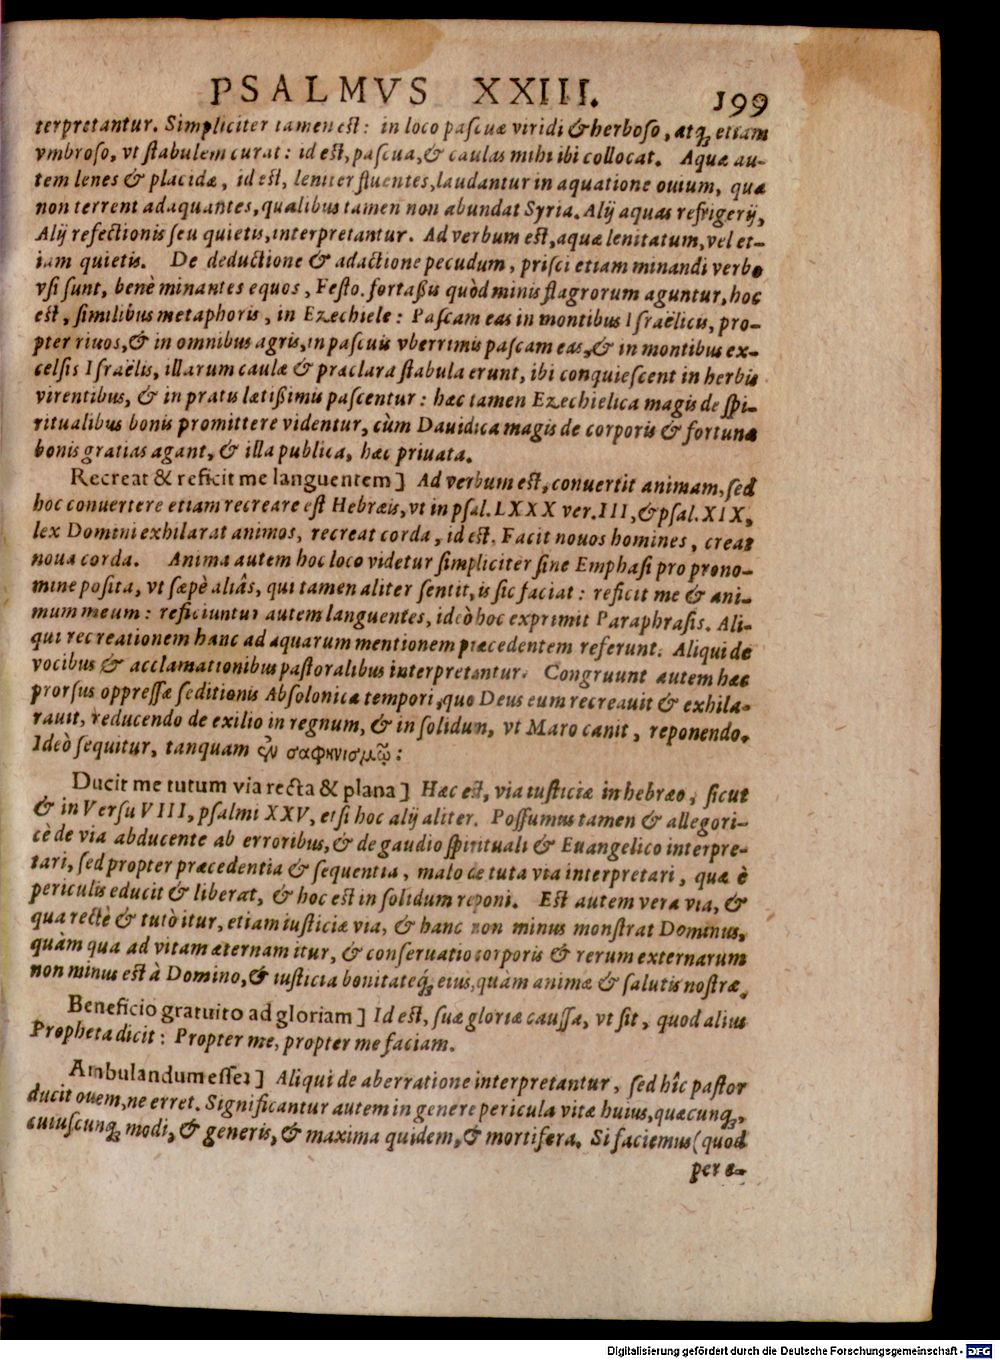 PSALMVS XXIII. 199
terpretantur. Simpliciter tamen est: in loco pascuæ viridi & herboso, atq; etiam
vmbroso, vt stabulem curat: id est, pascua, & caulas mihi ibi collocat. Aquæ au-
tem lenes & placidæ, id est, leniter fluentes, laudantur in aquatione ouium, quæ
non terrent adaquantes, qualibus tamen non abundat Syria. Alij aquas refrigerij,
Alij refectionis seu quietis, interpretantur. Ad verbum est, aquæ lenitatum, vel et-
iam quietis. De deductione & adactione pecudum, prisci etiam minandi verbo
vsi sunt, benè minantes equos, Festo. fortaßis quòd minis flagrorum aguntur, hoc
est, similibus metaphoris, in Ezechiele: Pascam eas in montibus Israëlicis, pro-
pter riuos, & in omnibus agris, in pascuis vberrimis pascam eas, & in montibus ex-
celsis Israëlis, illarum caulæ & præclara stabula erunt, ibi conquiescent in herbis
virentibus, & in pratis lætißimis pascentur: hæc tamen Ezechielica magis de spi-
ritualibus bonis promittere videntur, cùm Dauidica magis de corporis & fortunæ
bonis gratias agant, & illa publica, hæc priuata.
Recreat & reficit me languentem] Ad verbum est, conuertit animam, sed
hoc conuertere etiam recreare est Hebræis, vt in psal. LXXX ver. III, & psal. XIX,
lex Domini exhilarat animos, recreat corda, id est. Facit nouos homines, creat
noua corda. Anima autem hoc loco videtur simpliciter sine Emphasi pro prono-
mine posita, vt sæpè aliâs, qui tamen aliter sentit, is sic faciat: reficit me & ani-
mum meum: reficiuntur autem languentes, ideò hoc exprimit Paraphrasis. Ali-
qui recreationem hanc ad aquarum mentionem præcedentem referunt. Aliqui de
vocibus & acclamationibus pastoralibus interpretantur. Congruunt autem hæc
prorsus oppressæ seditionis Absolonicæ tempori, quo Deus eum recreauit & exhila-
rauit, reducendo de exilio in regnum, & in solidum, vt Maro canit, reponendo.
Ideò sequitur, tanquam ἐν σαφηνισμῷ:
Ducit me tutum via recta & plana] Hæc est, via iusticiæ in hebræo, sicut
& in Versu VIII, psalmi XXV, etsi hoc alij aliter. Possumus tamen & allegori-
cè de via abducente ab erroribus, & de gaudio spirituali & Euangelico interpre-
tari, sed propter præcedentia & sequentia, malo de tuta via interpretari, quæ è
periculis educit & liberat, & hoc est in solidum reponi. Est autem vera via, &
qua rectè & tutò itur, etiam iusticiæ via, & hanc non minus monstrat Dominus,
quàm qua ad vitam æternam itur, & conseruatio corporis & rerum externarum
non minus est à Domino, & iusticia bonitateq; eius, quàm animæ & salutis nostræ.
Beneficio gratuito ad gloriam] Id est, suæ gloriæ caussa, vt sit, quod alius
Propheta dicit: Propter me, propter me faciam.
Ambulandum esset] Aliqui de aberratione interpretantur, sed hîc pastor
ducit ouem, ne erret. Significantur autem in genere pericula vitæ huius, quæcunq;,
cuiuscunq; modi, & generis, & maxima quidem, & mortifera. Si faciemus (quod
per e-
Digitalisierung gefördert durch die Deutsche Forschungsgemeinschaft - DFG